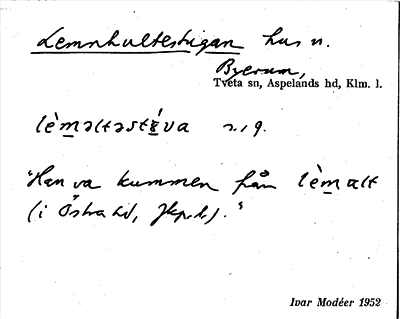 Lemnhultestugan hus n.
Byerum,
Tveta sn, Aspelands hd, Klm. l.
lèm̲əltəstɇ́va n. 19.
"Han va kummen från lèm̲əlt
(i Östra hd, Jkp.l.)."
Ivar Modéer 1952